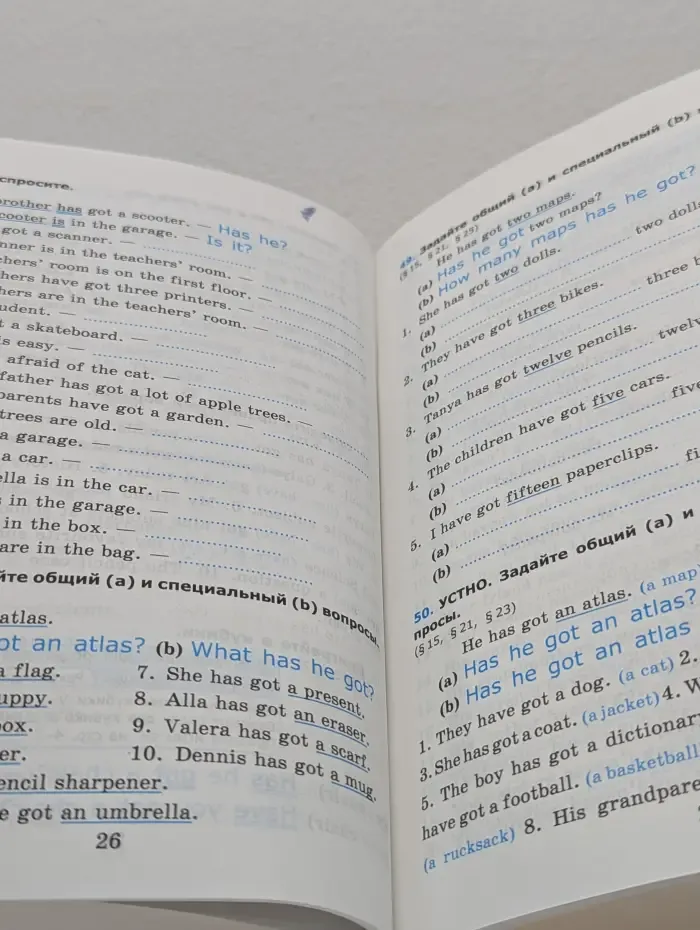 спросите.
brother has got a scooter. — Has he?
scooter is in the garage. — Is it?
got a scanner. —
nner is in the teachers' room. —
chers' room is on the first floor. —
hers have got three printers. —
hers are in the teachers' room. —
udent. —
t a skateboard. —
is easy. —
afraid of the cat. —
father has got a lot of apple trees. —
parents have got a garden. —
trees are old. —
a garage. —
a car. —
ella is in the car. —
in the garage. —
in the box. —
are in the bag. —
йте общий (a) и специальный (b) вопросы.
atlas.
ot an atlas? (b) What has he got?
a flag. 7. She has got a present.
uppy. 8. Alla has got an eraser.
box. 9. Valera has got a scarf.
er. 10. Dennis has got a mug.
encil sharpener.
e got an umbrella.
26
49. Задайте общий (a) и специальный (b)
(§ 15, § 21, § 25)
He has got two maps.
(a) Has he got two maps?
(b) How many maps has he got?
1. She has got two dolls.
(a) two dolls
(b)
2. They have got three bikes.
(a) three b
(b)
3. Tanya has got twelve pencils.
(a) twelv
(b)
4. The children have got five cars.
(a) five
(b)
5. I have got fifteen paperclips.
(a) fi
(b)
50. УСТНО. Задайте общий (a) и
просы.
(§ 15, § 21, § 23)
He has got an atlas. (a map)
(a) Has he got an atlas?
(b) Has he got an atlas
1. They have got a dog. (a cat) 2.
3. She has got a coat. (a jacket) 4. W
5. The boy has got a dictionar
have got a football. (a basketball
(a rucksack) 8. His grandpare